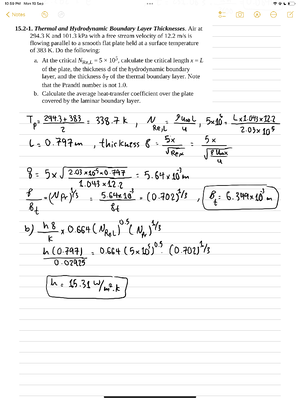 10:59 PM Mon 10 Sep
Notes
15.2-1. Thermal and Hydrodynamic Boundary Layer Thicknesses. Air at
294.3 K and 101.3 kPa with a free stream velocity of 12.2 m/s is
flowing parallel to a smooth flat plate held at a surface temperature
of 383 K. Do the following:
a. At the critical N_Re,L = 5 × 10⁵, calculate the critical length x = L
of the plate, the thickness δ of the hydrodynamic boundary
layer, and the thickness δ_T of the thermal boundary layer. Note
that the Prandtl number is not 1.0.
b. Calculate the average heat-transfer coefficient over the plate
covered by the laminar boundary layer.
T_f = (294.3 + 383)/2 = 338.7 K, N_Re,L = ρu∞L/μ, 5×10⁵ = L×1.043×12.2/2.03×10⁻⁵
L = 0.797 m, thickness δ = 5x/√Rex = 5x/√(ρu∞x/μ)
δ = 5x√(2.03×10⁻⁵×0.797/1.043×12.2) = 5.64×10⁻³ m
δ/δt = (N_Pr)^(1/3) = 5.64×10⁻³/δt = (0.702)^(1/3), δt = 6.349×10⁻³ m
b) hδ/k × 0.664 (N_Re,L)^0.5 (N_Pr)^(1/3)
h(0.797)/0.02925 = 0.664 (5×10⁵)^0.5 (0.702)^(1/3)
h = 15.31 W/m².K